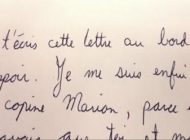 t'écris cette lettre au bord
espoir. Je me suis enfui
copine Marion, parce
que toi et